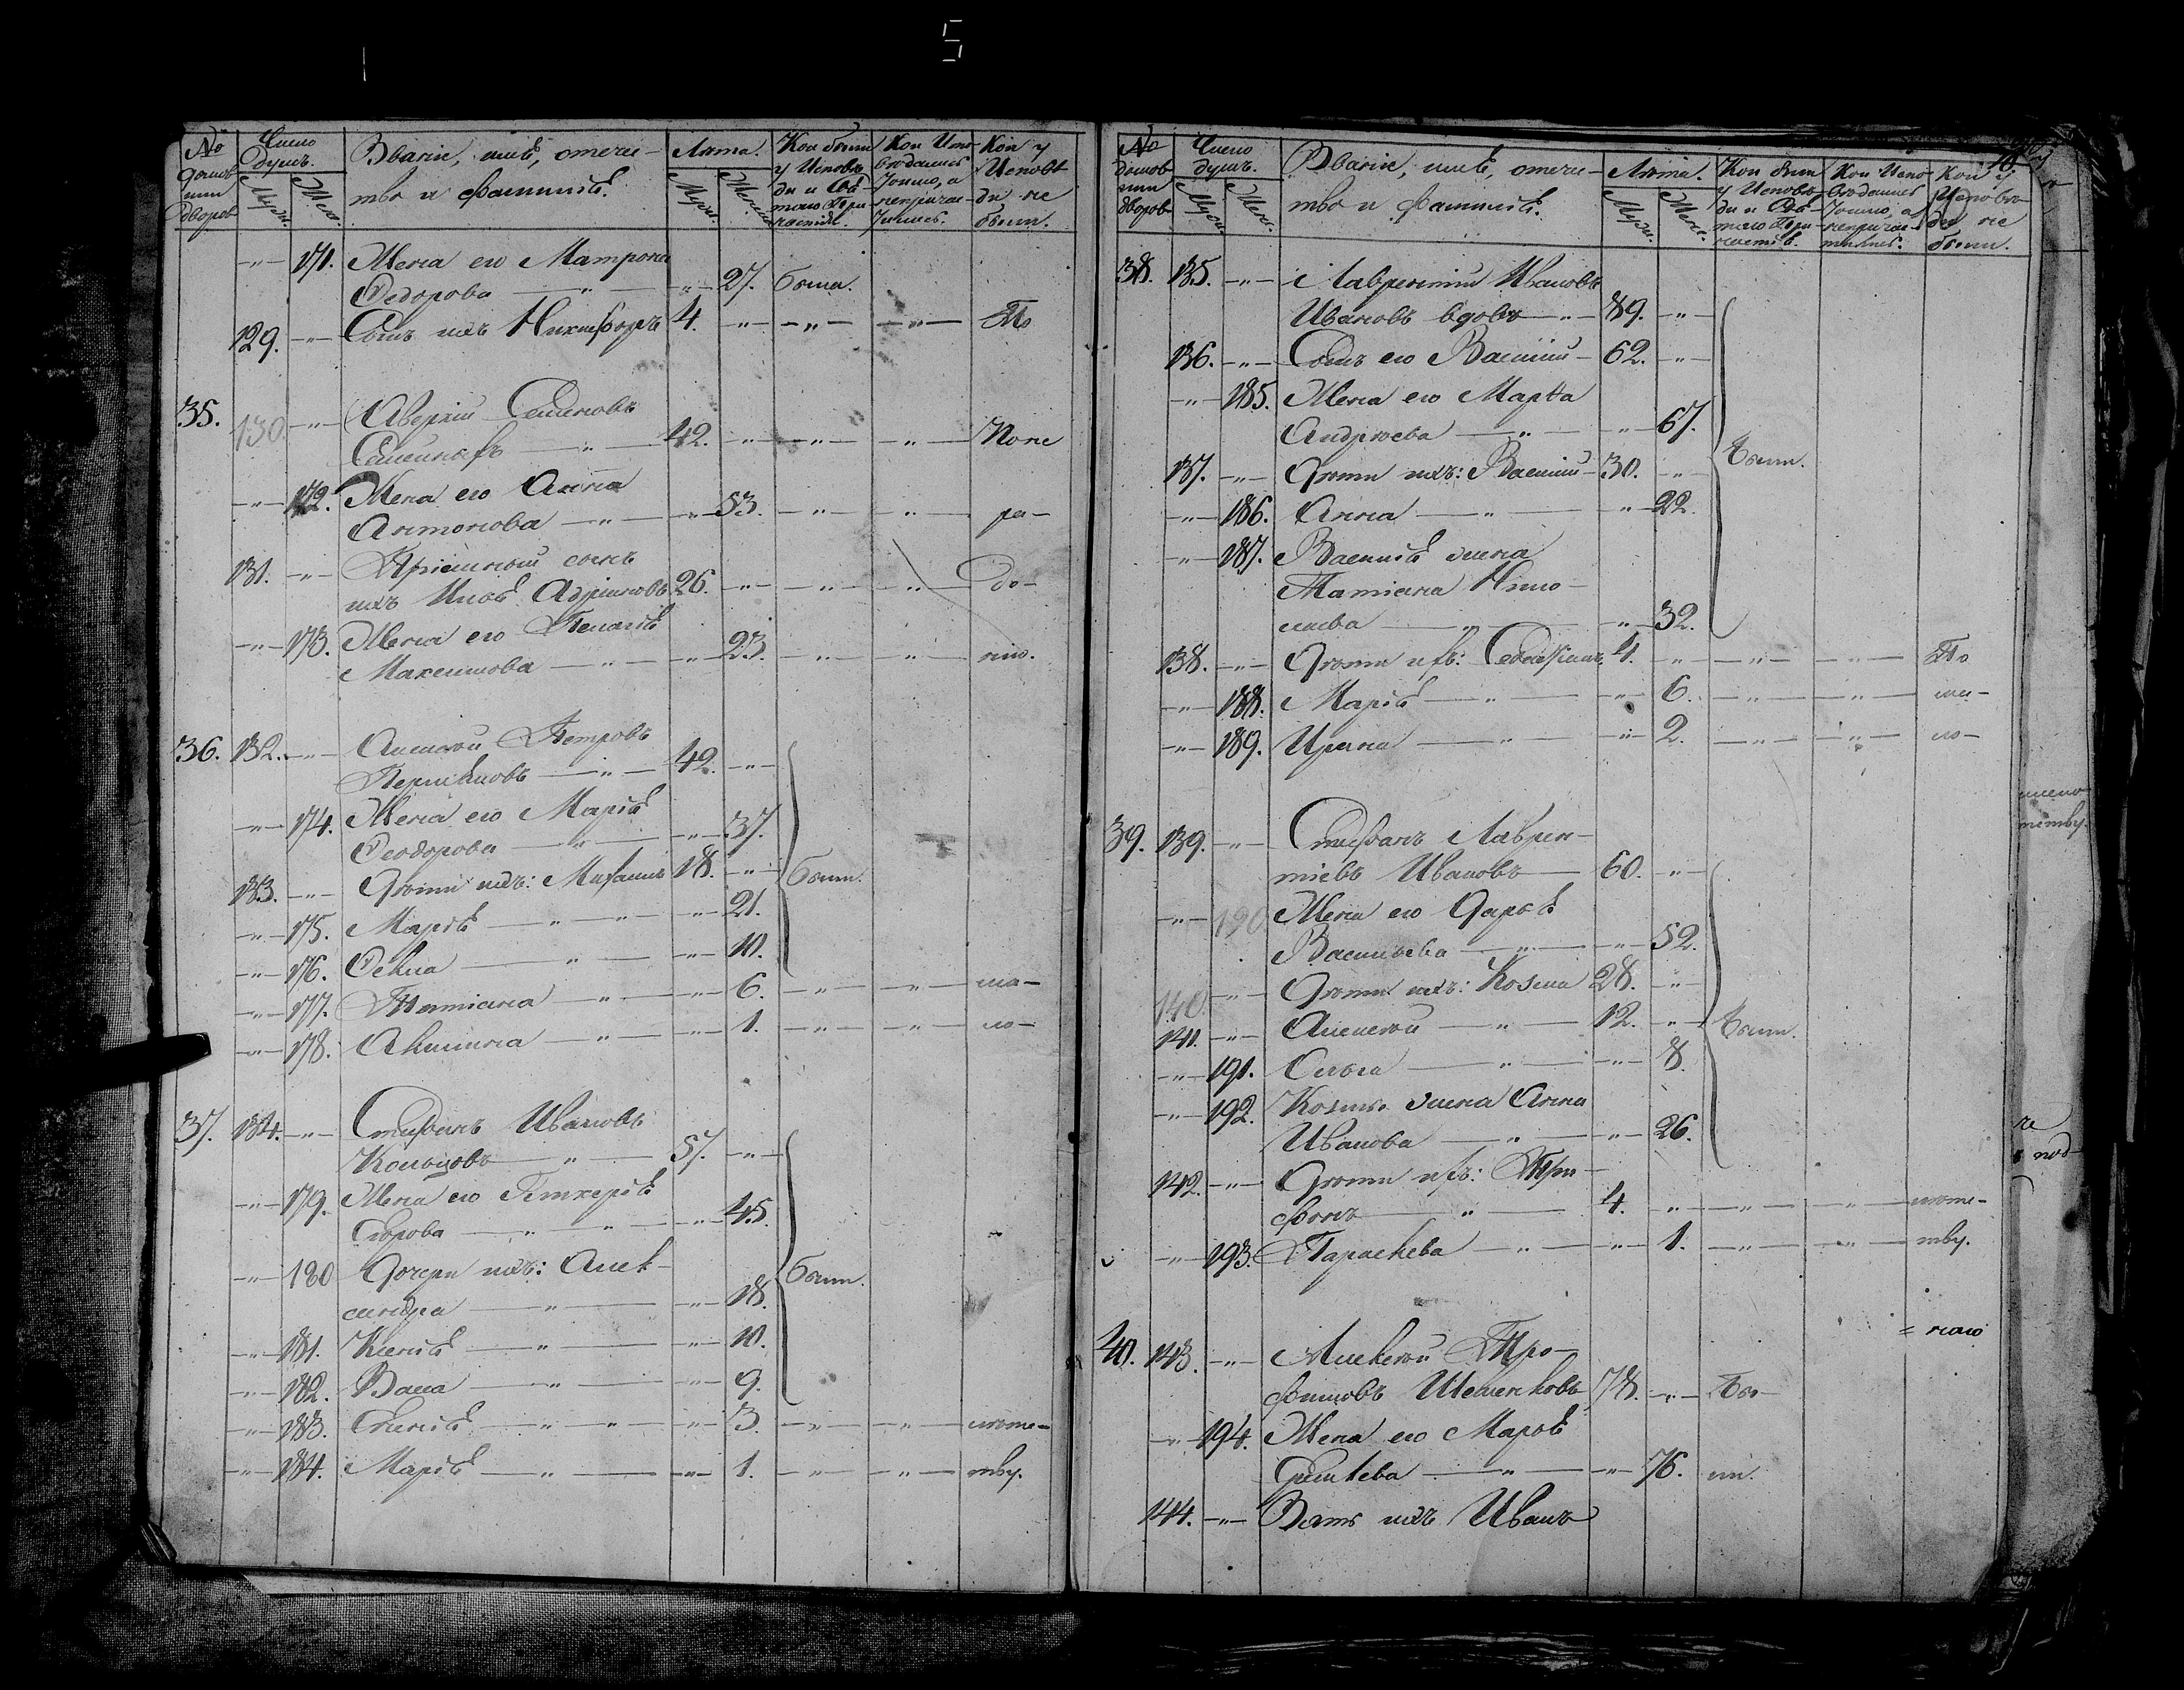 № домовъ или дворовъ
Число душъ.
Муж.
Жен.
Званіе, имѣ, отече-
тво и фамилія.
Лѣта.
Муж.
Женс.
Кои были
у Исповѣ-
ди и Свѣ-
таго При-
частія.
Кои Испо-
вѣдались
токмо, а
непричас-
тились.
Кои у
Исповѣ-
ди не
были.
-"- 171. Жена его Матрона
Федорова -"- -"- 27. была.
129. -"- Сынъ ихъ Никифоръ 4. -"- -"- -"- По
35. 130. -"- Аверкій Семеновъ
42. -"- -"- -"-
-"- 172. Жена его Анна
Антонова -"- -"- 53. -"- -"- ра-
131. -"- Пріемный сынъ
ихъ 26. -"- -"- -"- до-
-"- 173. Жена его Пелагія
Максимова -"- -"- 23. -"- -"-
36. 132. -"- Алексѣй Петровъ
-"- 42. -"-
-"- 174. Жена его Марія
Ѳеодорова -"- -"- 37.
133. -"- Дѣти ихъ: Михаилъ 18. -"- были.
-"- 175. Марія -"- -"- -"- 21.
-"- 176. Ѳекла -"- -"- 10.
-"- 177. Татіана -"- -"- 6. -"- -"- ма-
-"- 178. Акилина -"- -"- 1. -"- -"- ло-
37. 134. -"- Стефанъ Ивановъ
Кольцовъ -"- 57. -"-
-"- 179. Жена его Гликерія
Егорова -"- -"- -"- 45.
-"- 180 Дочери ихъ: Алек-
сандра -"- -"- 18. были.
-"- 181. Ксенія -"- -"- 10.
-"- 182. Васса -"- -"- 9.
-"- 183. Евгенія -"- -"- -"- 3. -"- -"- лѣте-
-"- 184. Марія -"- -"- 1. -"- -"- тву.
№ домовъ или дворовъ
Число душъ.
Муж.
Женс.
Званіе, имѣ, отече-
тво и фамилія.
Лѣта.
Муж.
Женс.
Кои были
у Исповѣ-
ди и Свѣ-
таго При-
частія.
Кои Испо-
вѣдались
токмо, а
непричас-
тились.
Кои у
Исповѣ-
ди не
были.
38. 135. -"- Лаврентій Ивановъ
Ивановъ вдовъ -"- 89. -"-
136. -"- Сынъ его Василій 62. -"-
-"- 185. Жена его Марѳа
Андреева -"- -"- 67.
137. -"- Дѣти ихъ: Василій 30. -"- были.
-"- 186. Анна -"- -"- 22.
-"- 187. Василія жена
Татіана Нико-
лаева -"- -"- 32.
138. -"- Дѣти ихъ: Севастіанъ 4. -"- -"- -"- По
-"- 188. Марія -"- -"- 6. -"- -"- ма-
-"- 189. Ирина -"- -"- 2. -"- -"- ло-
39. 139. -"- Стефанъ Лаврен-
тіевъ Ивановъ 60. -"-
-"- 190 Жена его Дарья
Васильева -"- -"- 52.
140. -"- Дѣти ихъ: Козма 28. -"-
141. -"- Алексѣй -"- 12. -"- были.
-"- 191. Ольга -"- -"- 8.
-"- 192. Козмы жена Анна
Иванова -"- -"- 26.
142. -"- Дѣти ихъ: Три-
фонъ -"- 4. -"- -"- -"- лѣте-
-"- 193. Параскева -"- -"- 1. -"- -"- тву.
40. 143. -"- Алексѣй Тро-
фимовъ 78. -"- бы-
-"- 194. Жена его Марія
-"- -"- 76. ли.
144. -"- Зять ихъ Иванъ